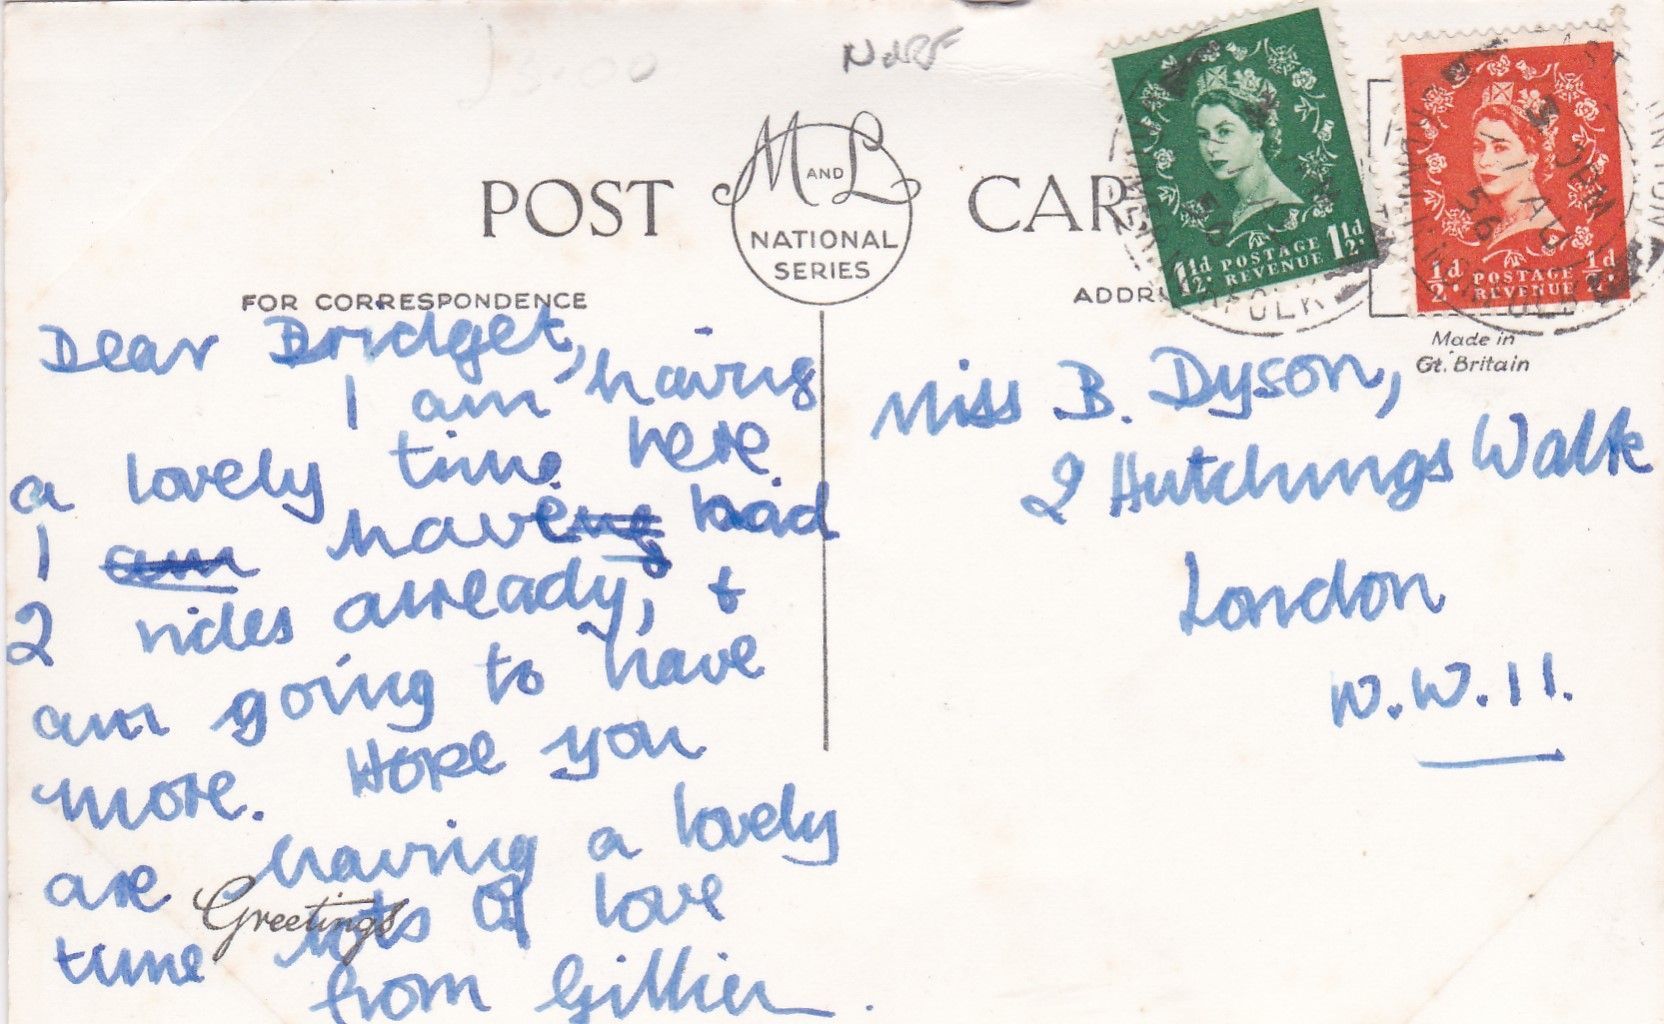 £3.00
Norf
POST
M AND L
NATIONAL
SERIES
CAR
FOR CORRESPONDENCE
ADDR
1½d POSTAGE 1½d
REVENUE
½d POSTAGE ½d
REVENUE
56
AU
56
FOLK
Made in
Gt. Britain
Dear Bridget,
I am having
a lovely time here
I am having had
2 rides already, +
am going to have
more. Hope you
are having a lovely
time lots of love
from Gillien.
Greetings
Miss B. Dyson,
2 Hutchings Walk
London
N.W.11.